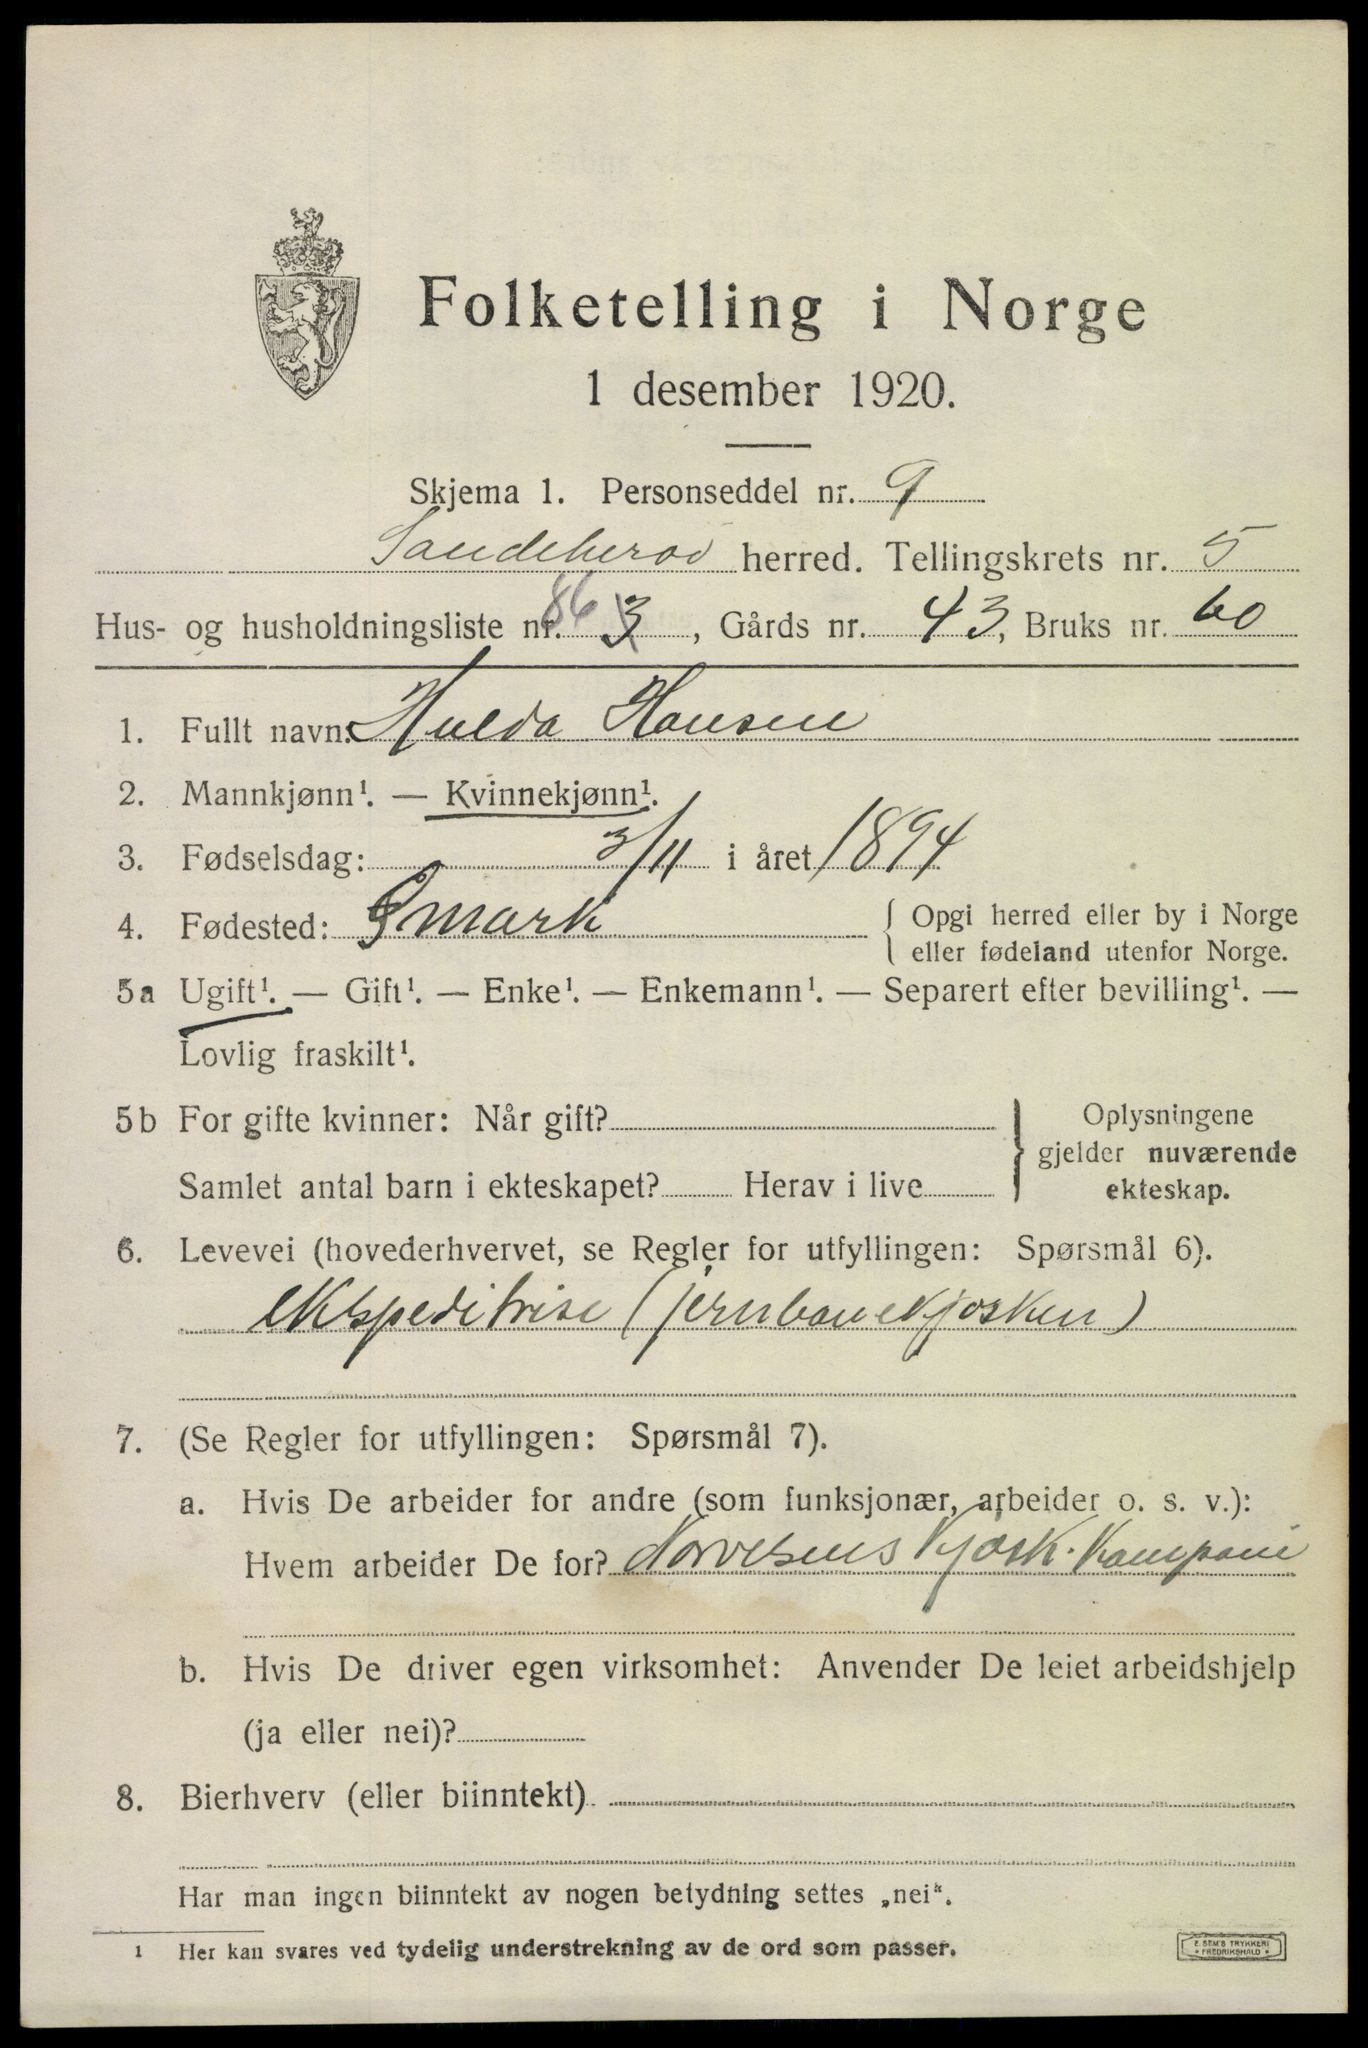 Folketelling i Norge
1 desember 1920.
Skjema 1. Personseddel nr. 9
Sandeherad herred. Tellingskrets nr. 5
Hus- og husholdningsliste nr. 86 3, Gårds nr. 43, Bruks nr. 60
1. Fullt navn: Hulda Hansen
2. Mannkjønn¹. — Kvinnekjønn¹.
3. Fødselsdag: 3/11 i året 1894
4. Fødested: Ømark { Opgi herred eller by i Norge
eller fødeland utenfor Norge.
5a Ugift¹. — Gift¹. — Enke¹. — Enkemann¹. — Separert efter bevilling¹. —
Lovlig fraskilt¹.
5b For gifte kvinner: Når gift?
Samlet antal barn i ekteskapet? Herav i live
} Oplysningene
gjelder nuværende
ekteskap.
6. Levevei (hovederhvervet, se Regler for utfyllingen: Spørsmål 6).
ekspeditrise (jernbanekjosken)
7. (Se Regler for utfyllingen: Spørsmål 7).
a. Hvis De arbeider for andre (som funksjonær, arbeider o. s. v.):
Hvem arbeider De for? Narvesens Kjosk. Kompani
b. Hvis De driver egen virksomhet: Anvender De leiet arbeidshjelp
(ja eller nei)?
8. Bierhverv (eller biinntekt)
Har man ingen biinntekt av nogen betydning settes „nei“.
1 Her kan svares ved tydelig understrekning av de ord som passer.
E. SEM'S TRYKKERI
* FREDRIKSHALD *